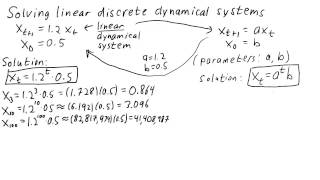 Solving linear discrete dynamical systems
x_{t+1} = 1.2 x_t
x_0 = 0.5
linear
dynamical
system
x_{t+1} = a x_t
x_0 = b
a=1.2
b=0.5
(parameters: a, b)
Solution:
x_t = 1.2^t · 0.5
solution: x_t = a^t b
x_3 = 1.2^3 · 0.5 = (1.728)(0.5) = 0.864
x_10 = 1.2^10 · 0.5 ≈ (6.192)(0.5) = 3.096
x_100 = 1.2^100 · 0.5 ≈ (82,817,974)(0.5) = 41,408,987